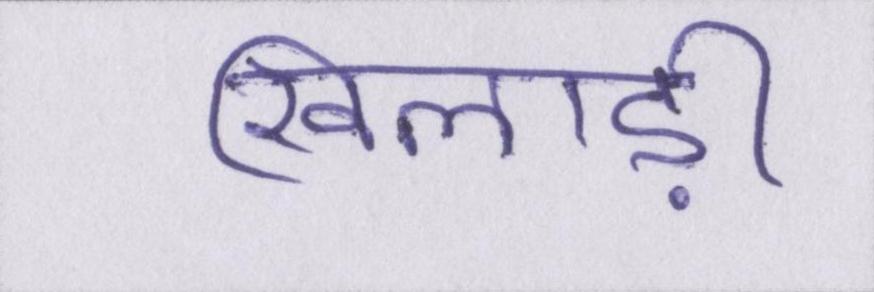 खिलाड़ी